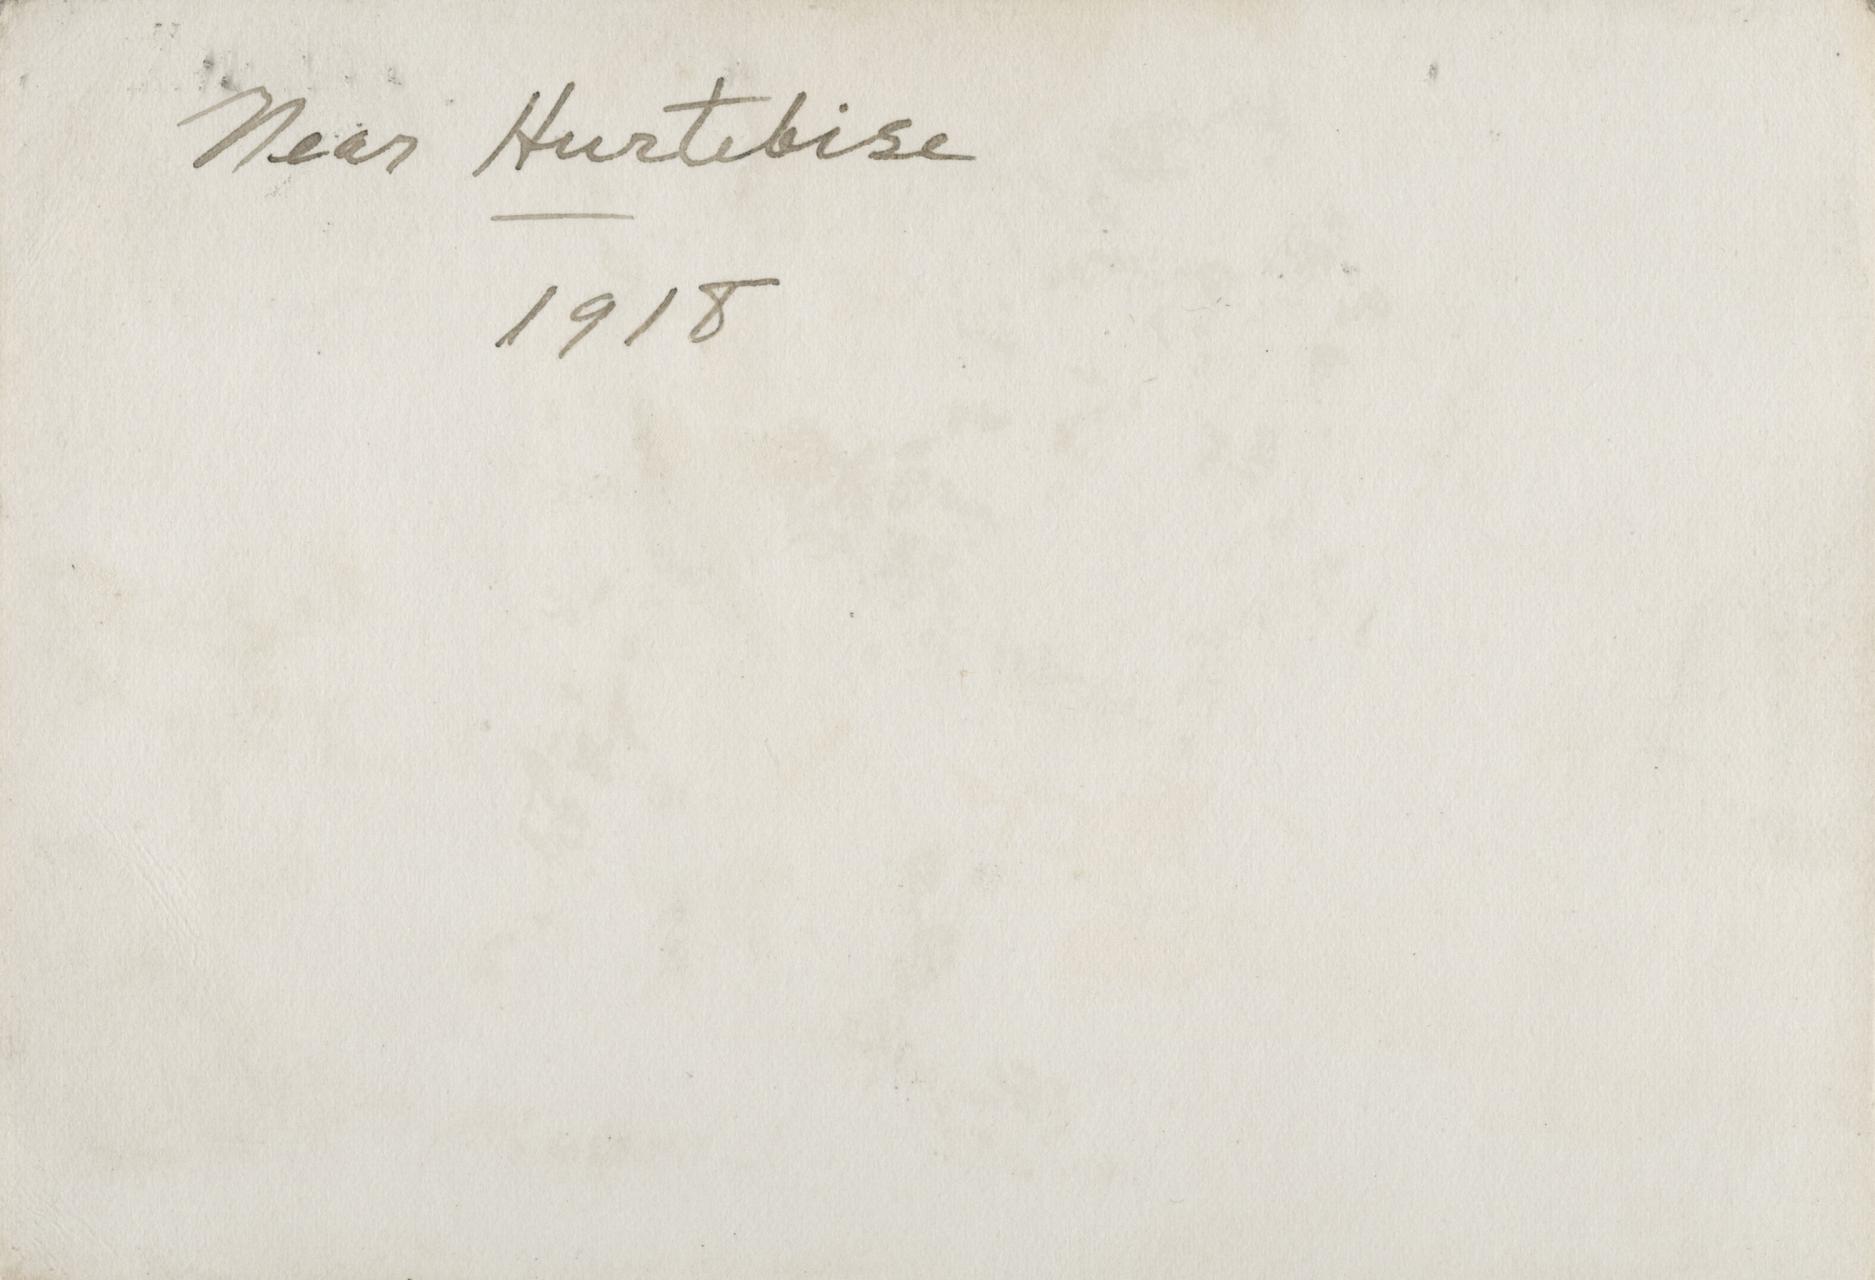 Near Hurtebise
1918